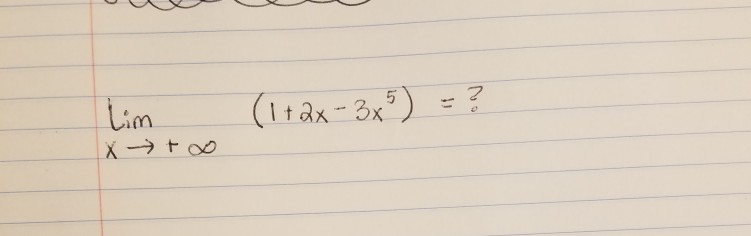 Lim (1+2x-3x⁵) = ?
x → +∞